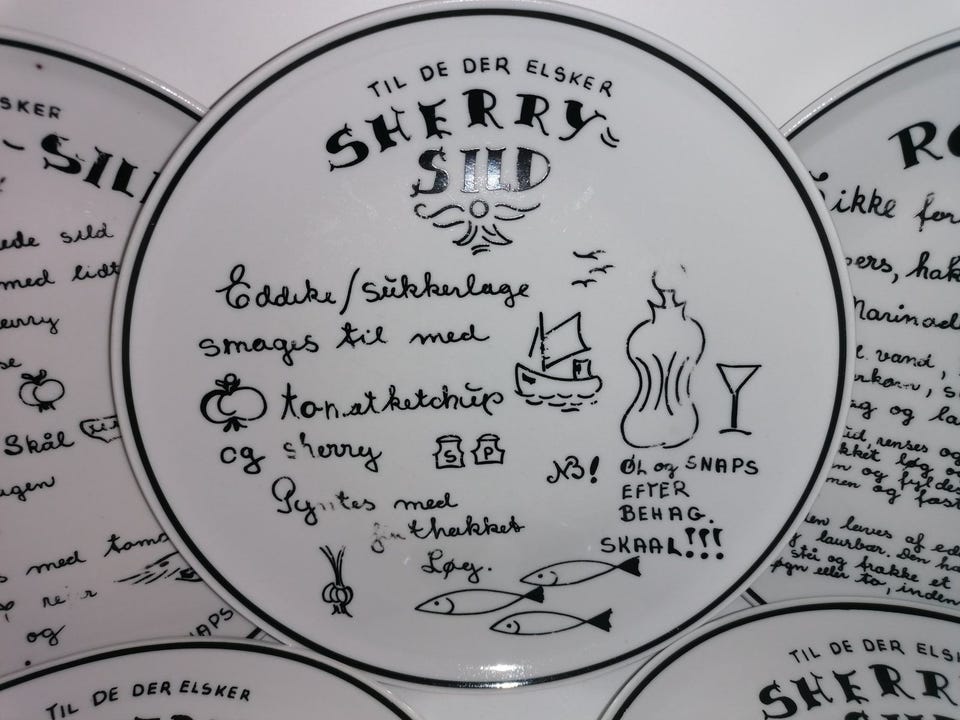 TIL DE DER ELSKER
SHERRY-
SILD
Eddike/sukkerlage
smages til med
tomatketchup
og sherry
S P
Pyntes med
finthakket
Løg.
NB! ØL og SNAPS
EFTER
BEHAG.
SKAAL!!!
SKER
-SIL
ede sild
med lidt
erry
se
Skål
ugen
s med toma
og
APS
RO
ikke for
pers, hak
Marinad
l. vand,
rkorn, s
ag og la
renses og
kket løg o
n og fyldes
men og fast
en laves af ed
laurbær. Den ha
stå og trække et
pgn eller to, inden
TIL DE DER ELSKER
TIL DE DER ELSK
SHERR